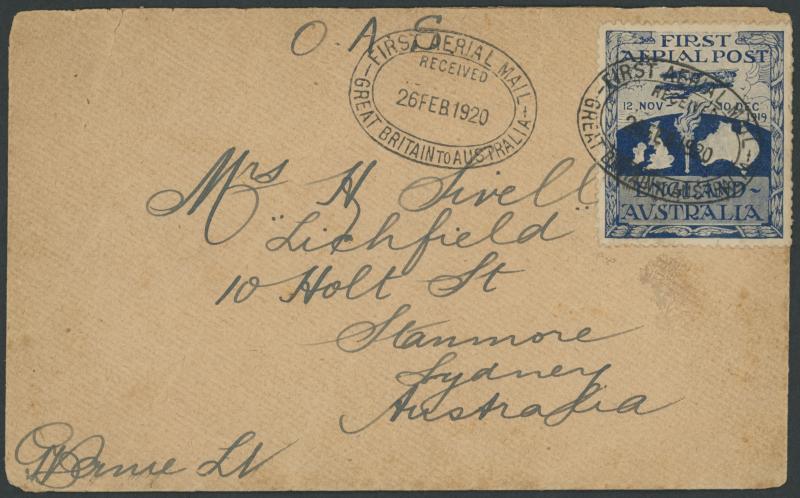 O. A. S
FIRST AERIAL MAIL
RECEIVED
26 FEB 1920
GREAT BRITAIN TO AUSTRALIA
FIRST
AERIAL POST
12, NOV 10 DEC
1919
ENGLAND~
AUSTRALIA
FIRST AERIAL MAIL
RECEIVED
1920
GREAT BRITAIN
Mrs H Sivell
"Lichfield"
10 Holt St
Stanmore
Sydney
Australia
Lt